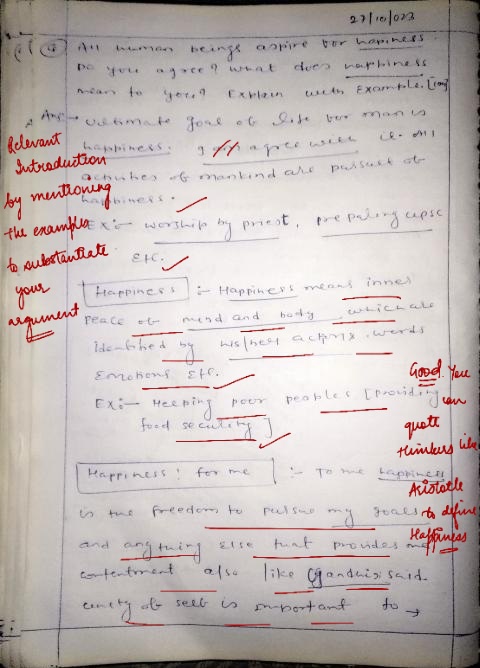 27/10/023
Q1) 4) All human beings aspire for hapiness.
Do you agree? What does happiness
mean to you? Explain with Example. [150]
Ans:→ Ultimate goal of life for man is
happiness. I am agree with it. All
activities of mankind are pursuit of
happiness.
Ex:- worship by priest, preparing upsc
Etc.
Happiness :- Happiness means inner
peace of mind and body which are
identified by his/her actions, words
Emotions Etc.
Ex:- Helping poor peoples [providing
food security]
Happiness! for me :- To me happiness
is the freedom to pursue my goals
and anything else that provides me
contentment also like Gandhiji said.
unity of self is important to →
Relevant
Introduction
by mentioning
the examples
to substantiate
your
argument
Good. You
can
quote
thinkers like
Aristotle
to define
Happiness